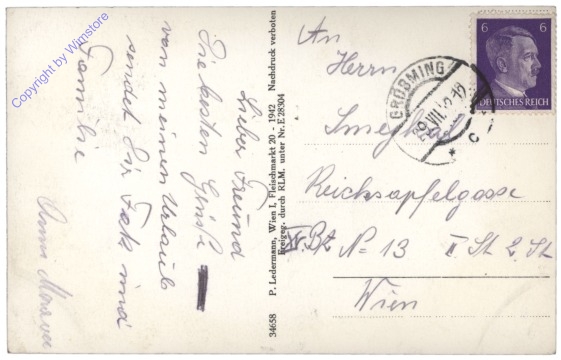 Copyright by Wimstore
Lieber Freund
Die besten Grüße
von meinen Urlaub
sendet Dir Fak und
Familie
Anna
34658 P. Ledermann, Wien I, Fleischmarkt 20 - 1942 Nachdruck verboten
Freigeg. durch RLM. unter Nr. E 28304
An
Herrn
Reichsapfelgasse
Bz No 13 II St 2 St
Wien
GRÖBMING
c
6 6
DEUTSCHES REICH